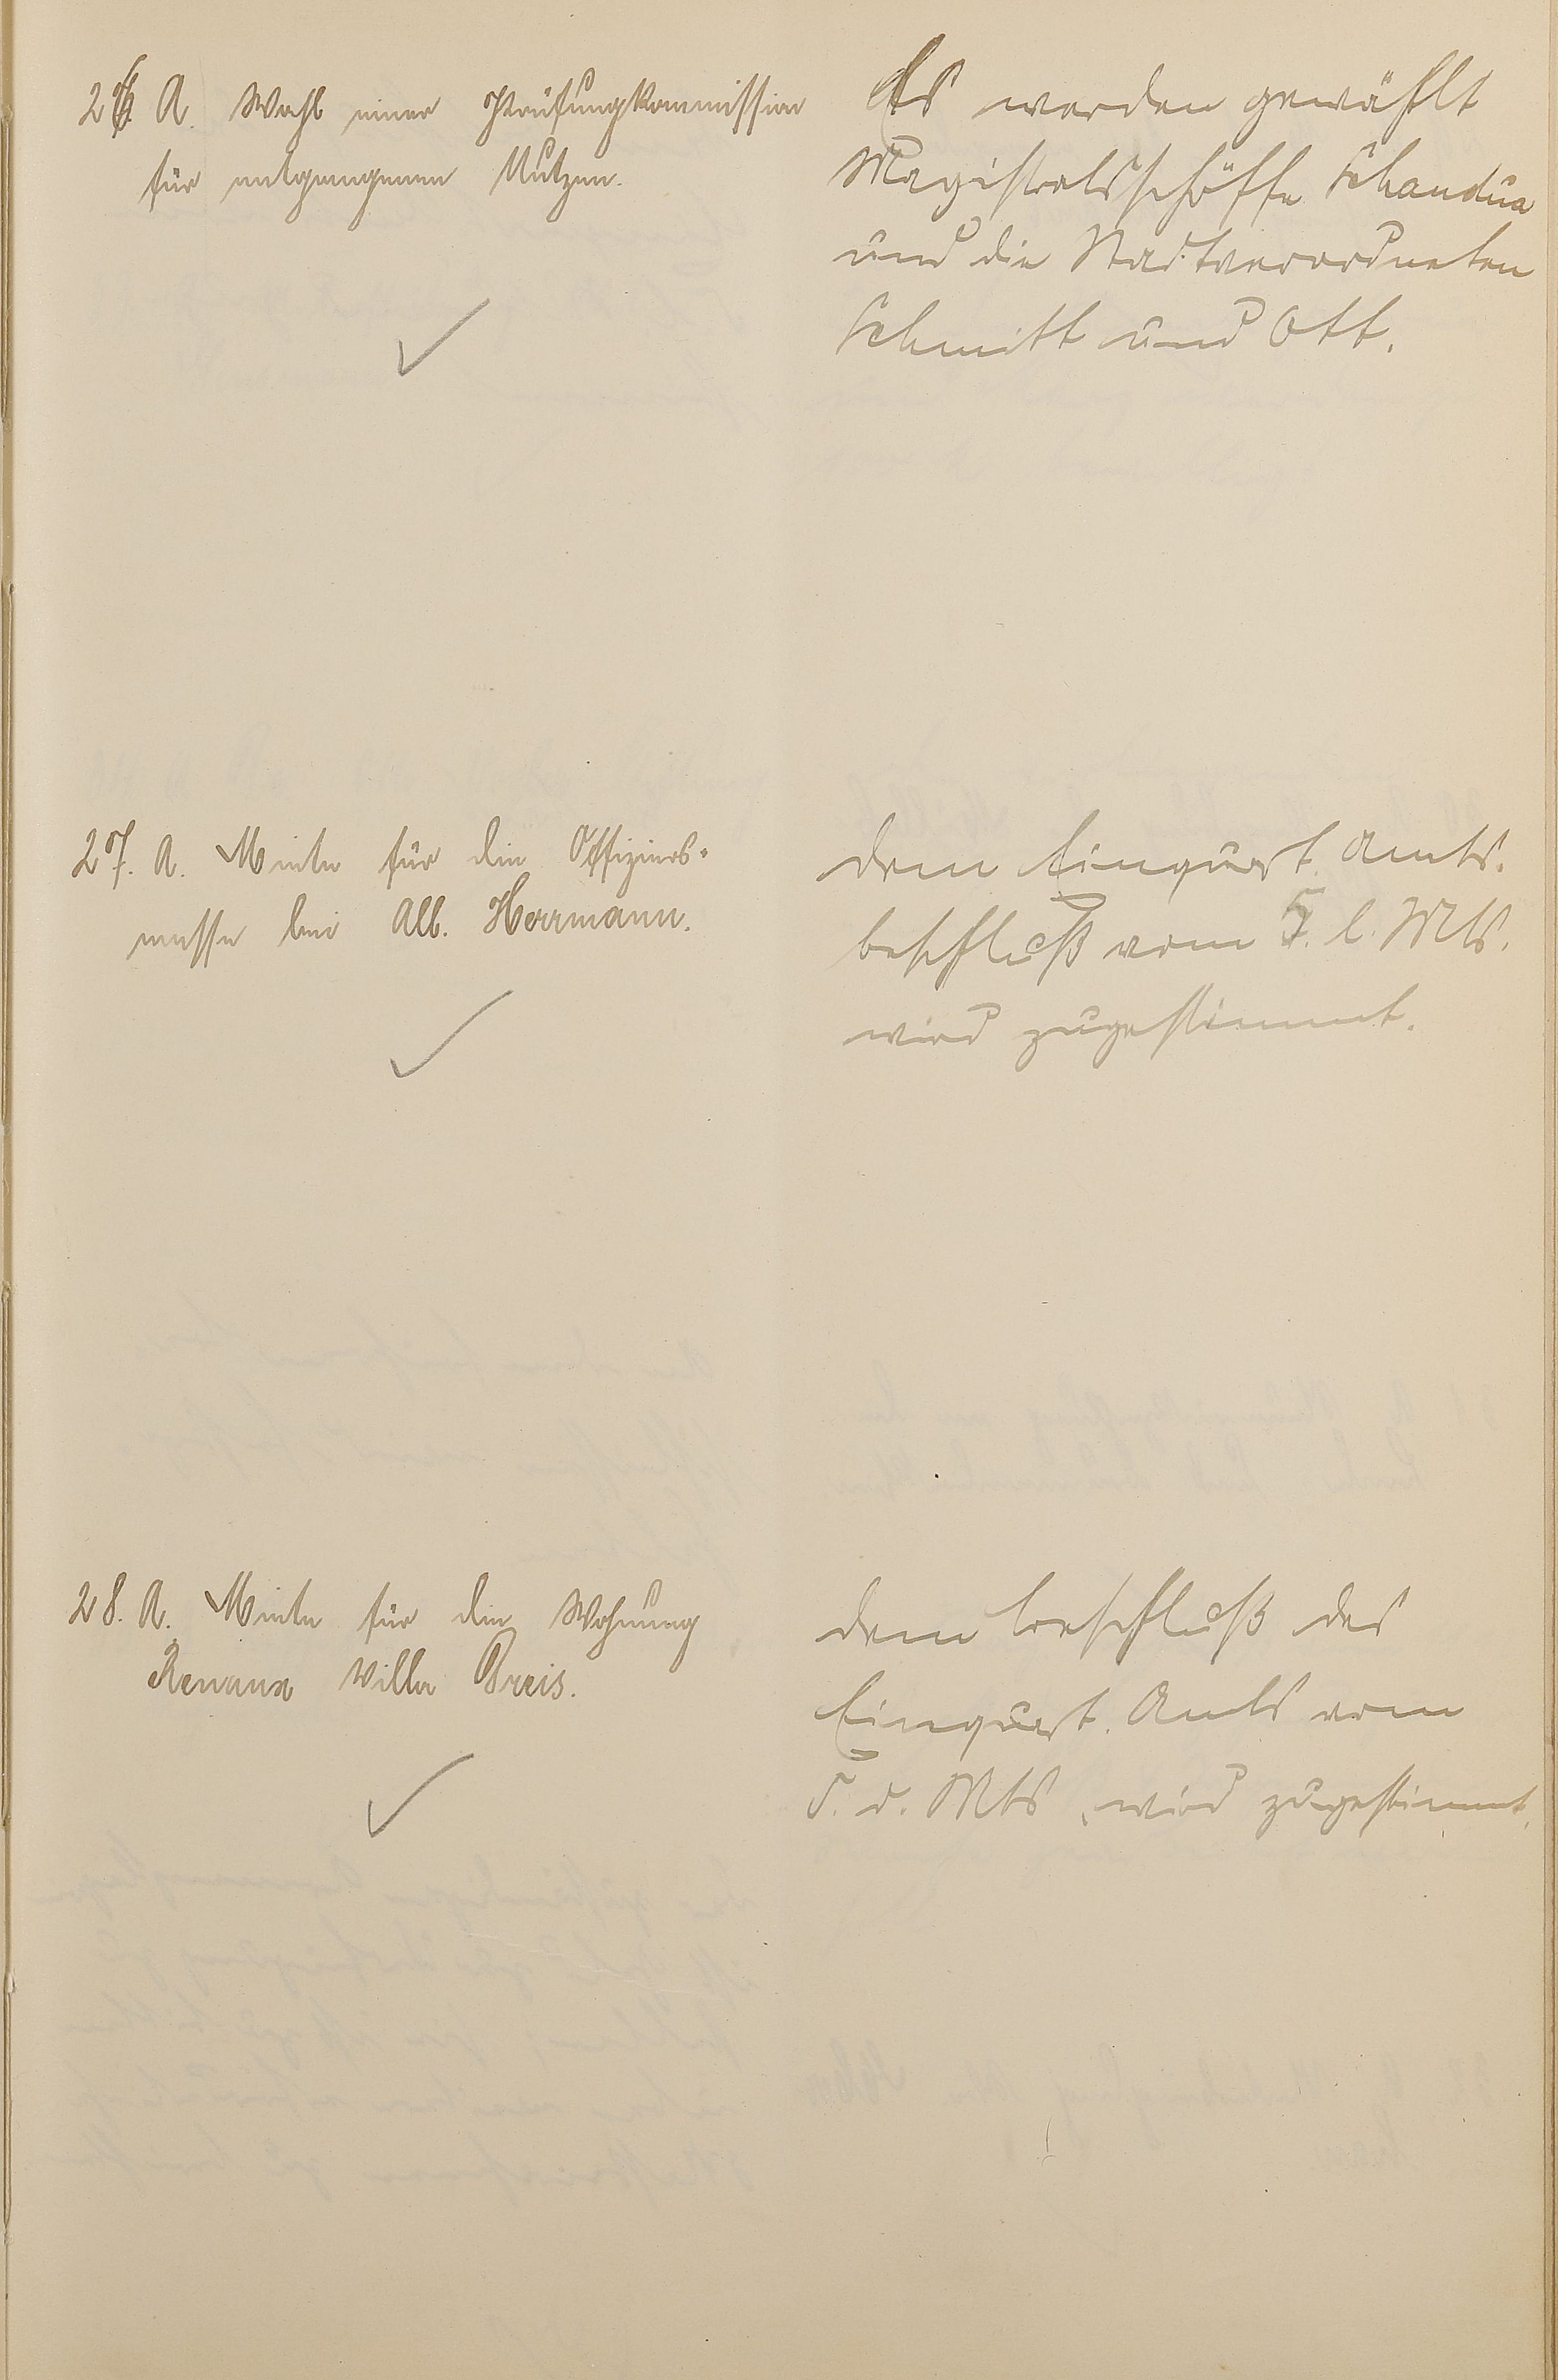 26. A. Wahl einer Prüfungkommission
für entgangenen Nutzen.
Es werden gewählt
Magistratsschöffe Schandua
und die Stadtverordneten
Schmitt und Ott.
27. A. Miete für die Offiziers-
messe bei Alb. Herrmann.
Dem Einquart. Amts.
beschluß vom 5. l. Mts.
wird zugestimmt.
28. A. Miete für die Wohnung
Renaux Villa Preis.
Dem Beschluß des
Einquart. Amts vom
5. d. Mts. wird zugestimmt.